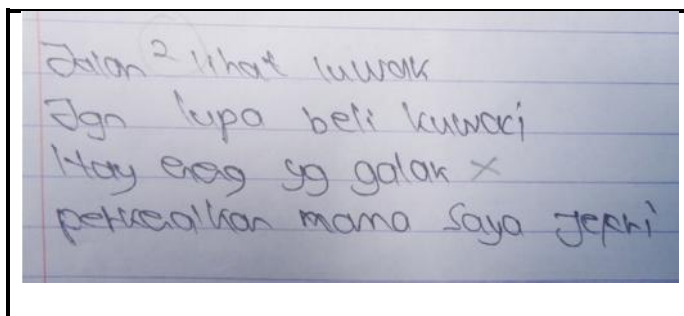 Jalan ² lihat luwak
Jgn lupa beli kuwaci
Hay yg galak ×
perkenalkan mama saya Jepri